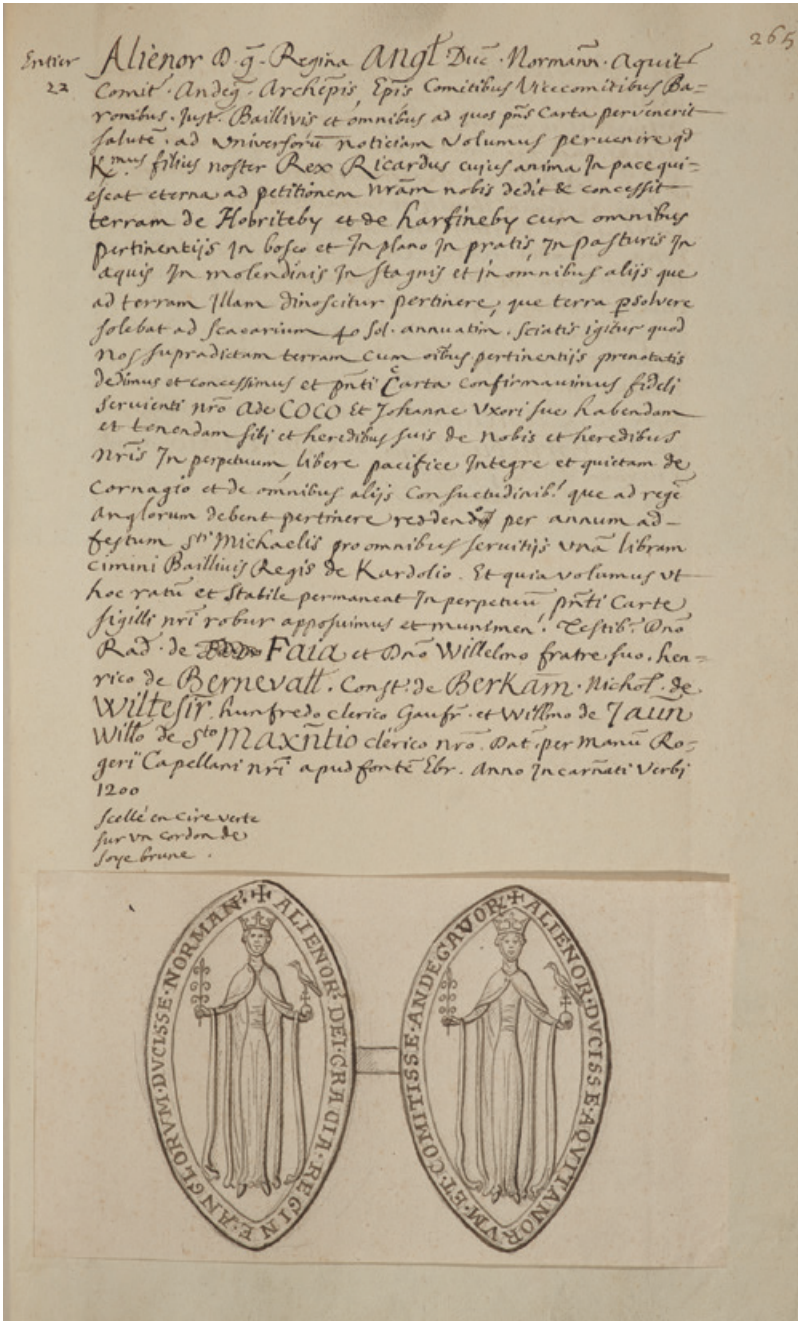 265
Entier
22
Alienor D. g̃. Regina Angł Duc̃. Normañn. Aquit
Comit̃. Andeg̃. Archẽpis, Epĩs Comitibus Vicecomitibus Ba=
ronibus. Just. Baillivis et omnibus ad quos pñs Carta pervenerit
salutẽ. ad vniversorũ noticiam volumus peruenire qd
K^mus filius noster Rex Ricardus cujus anima In pace qui=
escat eterna ad petitionem nrãm nobis dedit & concessit
terram de Hobriteby et de harfineby cum omnibus
pertinentijs In bosco et In plano In pratis, In pasturis In
aquis In molendinis In stagnis et in omnibus alijs que
ad terram Illam dinoscitur pertinere, que terra p̱solvere
solebat ad scacarium 40 sol. annuatim. sciatis igitur quod
nos supradictam terram cum oĩbus pertinentijs prenotatis
dedimus et concessimus et pñti Carta confirmauimus fideli
seruienti nrõ Ade COCO Et Johanne Vxori sue habendam
et tenendam sibj et heredibus suis de nobis et heredibus
nrĩs In perpetuum libere pacifice Integre et quietam de
Cornagio et de omnibus alijs Consuetudinib.' que ad regẽ
anglorum debent pertinere reddendo per annum ad-
festum s^ti Michaelis pro omnibus seruitijs vnã libram
cimini Baillivis Regis de Kardolio. Et quia volumus vt
hoc ratũ et stabile permaneat In perpetuũ pñti Carte
sigilli nrĩ robur apposuimus et munimen.' Testib.' Dnõ
Rad. de Faia et Dnõ Willelmo fratre suo. hen=
rico de Bernevałł. Const.' de Berkam̃. Nichol̃. de
Wiltesir̃. hunfredo clerico Gaufr̃. et Willmo de Jaun
Willõ de S^to Maxñtio clerico nrõ. Dat̃. per Manũ Ro=
geri Capellani nrĩ apud fontẽ Ebr. Anno Incarñati Verbj
1200
scellé en cire verte
sur vn cordon de
soye brune.
✠ ALIENOR' DEI·GRACIA·REGINE·ANGLORVM·DVCISSE·NORMAN'
✠ ALIENOR·DVCISSE·AQVITANORVM·ET·COMITISSE·ANDEGAVOR'